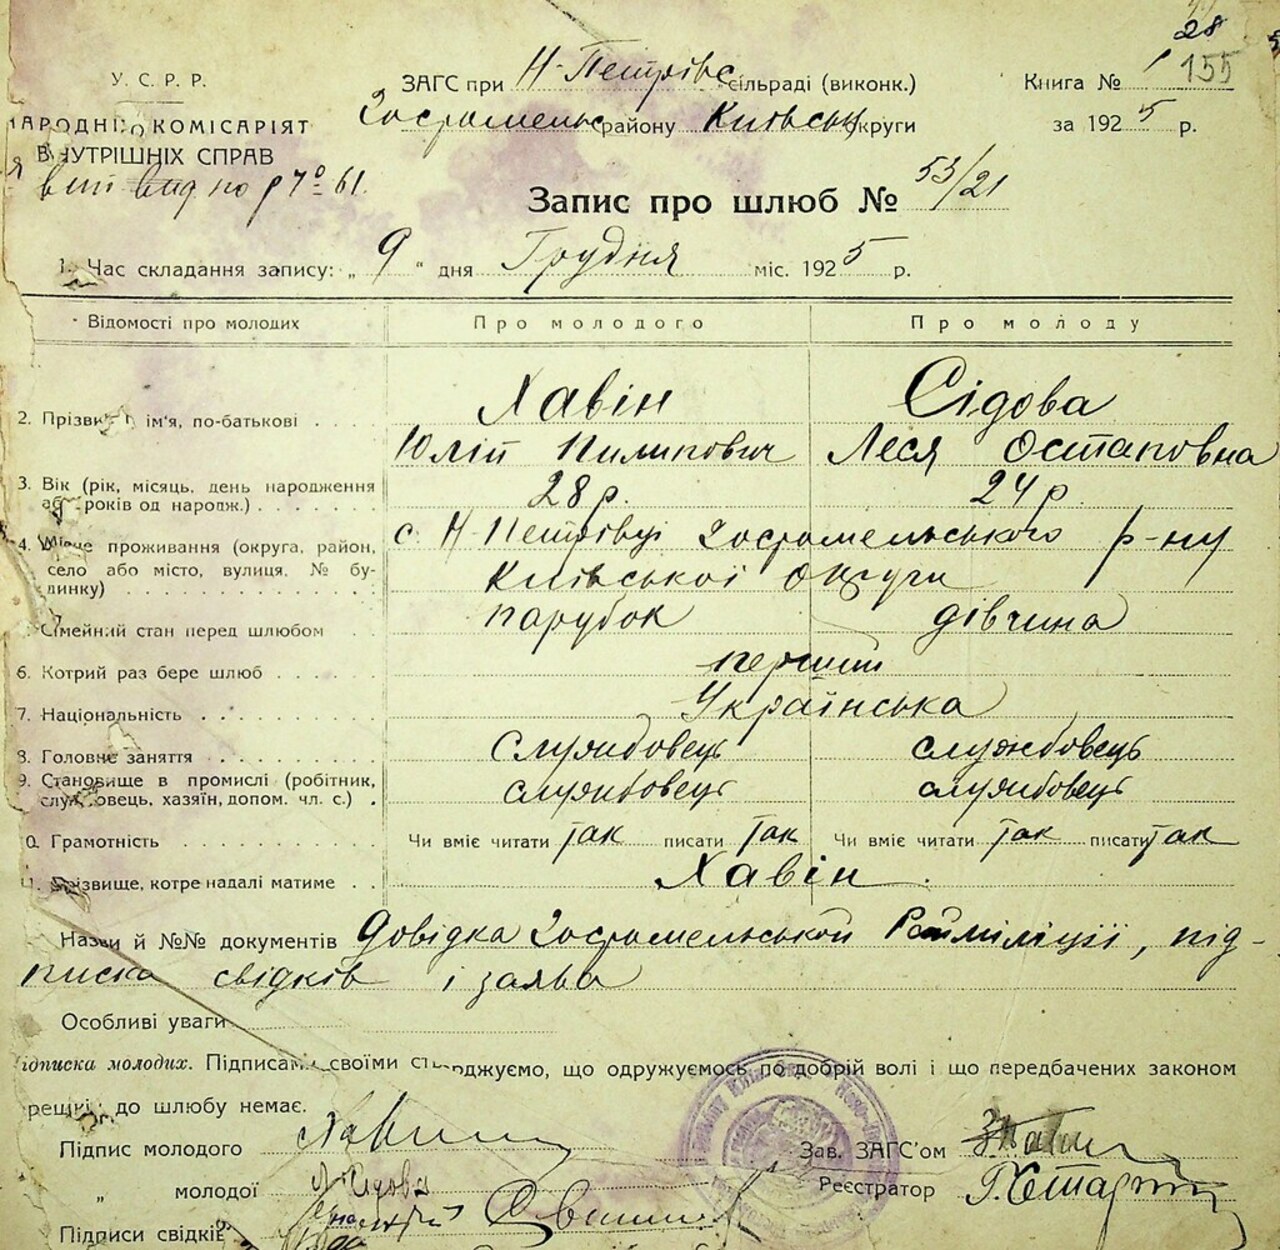 28
155
У. С. Р. Р.
ЗАГС при Н-Петрівс. сільраді (виконк.)
Книга № 1
НАРОДНІЙ КОМІСАРІЯТ
Гостомельс району Київськ округи
за 1925 р.
ВНУТРІШНІХ СПРАВ
Запис про шлюб № 53/21
1. Час складання запису: „ 9 " дня Грудня міс. 1925 р.
Відомості про молодих
Про молодого
Про молоду
2. Прізвище, ім'я, по-батькові
Хавін
Сідова
Юлій Пилипович
Леся Остаповна
3. Вік (рік, місяць, день народження
або років од народж.)
28 р.
24 р
4. Місце проживання (округа, район,
село або місто, вулиця, № бу-
динку)
с. Н Петрівці Гостомельського р-ну
Київської округи
Сімейний стан перед шлюбом
парубок
дівчина
6. Котрий раз бере шлюб
перший
7. Національність
Українська
8. Головне заняття
Службовець
службовець
9. Становище в промислі (робітник,
службовець, хазяїн, допом. чл. с.)
службовець
службовець
0. Грамотність
Чи вміє читати так писати так
Чи вміє читати так писати так
11. Прізвище, котре надалі матиме
Хавін
Назви й №№ документів Довідка Гостомельської Райміліції, під-
писка свідків і заява
Особливі уваги
ідписка молодих. Підписами своїми стверджуємо, що одружуємось по добрій волі і що передбачених законом
решкод до шлюбу немає.
Підпис молодого Хавин
Зав. ЗАГС'ом
„ молодої Л Сідова
Реєстратор
Підписи свідків